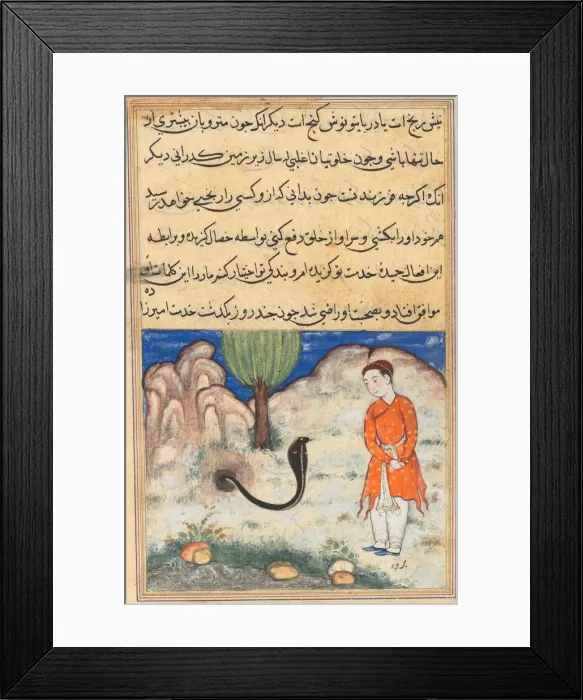 نیش ریخ ات یا در با یتو نوش کنج است دیگر انکه چون متروبان بیشتری از
حال تنها باشی و چون خلوتیان اغلب سال زیر زمین کذرانی دیکر
انک اکرچه فرزند تست چون بدانی که ازو کسی را رنجی خواهد رسید
هم خود او را بکشی و سر او از خلق دفع کنی بواسطه خصال کزیده و برابطه
این افعال حمیده خدمت تو کزیدم امر و بندکی تو اختیار کنم مار را این کلمات او
ده
موافق افتاد و بصحبت او راضی شد چون چند روز بکذشت خدمت امیرزا